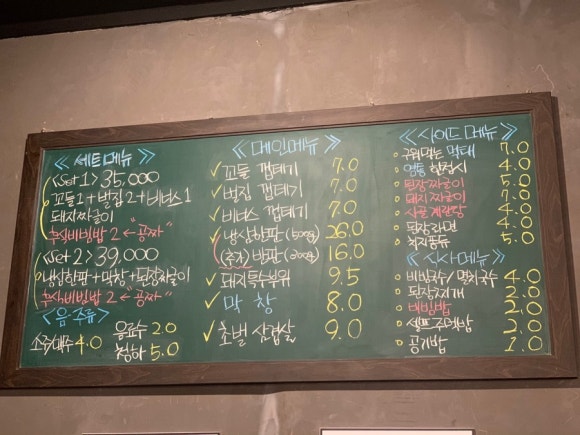 ≪세트메뉴≫
<Set 1> 35,000
꼬들1+벌집2+비너스1
돼지짜글이
추억비빔밥 2 ← "공짜"
<Set 2> 39,000
냉삼한판+막창+된장짜글이
추억비빔밥 2 ← "공짜"
<음·주류>
소주/맥주 4.0
음료수 2.0
청하 5.0
≪메인메뉴≫
✓ 꼬들 껍데기 7.0
✓ 벌집 껍데기 7.0
✓ 비너스 껍데기 7.0
✓ 냉삼한판 (500g) 26.0
(추가) 반판 (300g) 16.0
✓ 돼지특수부위 9.5
✓ 막창 8.0
✓ 초벌 삼겹살 9.0
≪사이드 메뉴≫
구워먹는 먹태 7.0
4.0
된장짜글이 5.0
돼지짜글이 7.0
사골 계란탕 4.0
된장라면 4.0
치즈퐁듀 5.0
≪식사메뉴≫
비빔국수/멸치국수 4.0
된장찌개 2.0
비빔밥 2.0
셀프주먹밥 2.0
공기밥 1.0